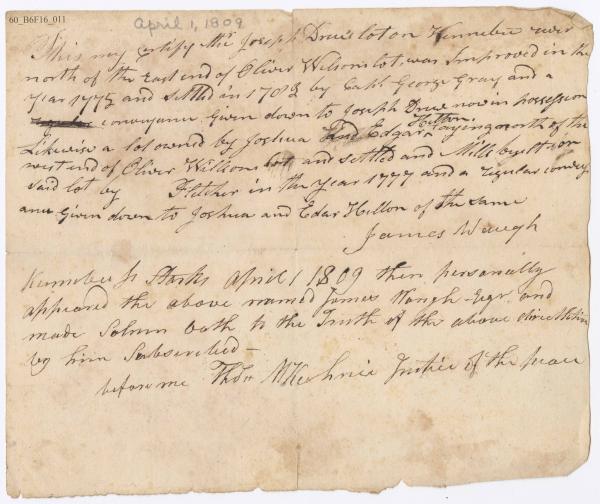 60_B6F16_011
April 1, 1809
This may certify Mr Joseph Drew's lot on Kennebec river
north of the East end of Oliver Wilson's lot was Improved in the
year 1775 and settled in 1782 by Capt George Gray and a
conveyance Given down to Joseph Drew now in possession
Likewise a lot owned by Joshua and Edgar Hilton laying north of the
west end of Oliver Willson lot and settled and Mills built on
said lot by Fletcher in the year 1777 and a regular convey
ance Given down to Joshua and Edar Hilton of the same
James Waugh
Kennebec Ss Starks April 1 1809 then personally
appeared the above named James Waugh Esqr and
made Solmn Oath to the Truth of the above
by him Subscribed —
before me Justice of the peace